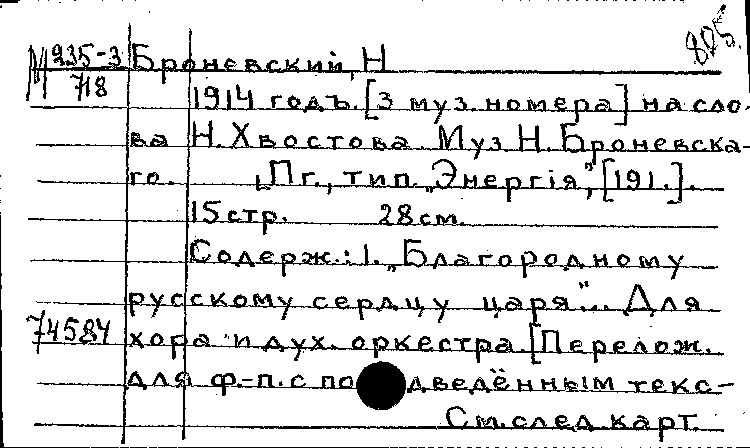 805.
М 235-3 Броневский, Н
718
1914 годъ. [3 муз. номера] на сло-
ва Н. Хвостова. Муз. Н. Броневска-
го. Пг., тип. „Энергія”, [191.].
15 стр. 28 см.
Содерж.: 1. „Благородному
русскому сердцу царя”... Для
74584 хора и дух. оркестра. [Перелож.
для ф.-п. с подведённым текс-
См. след. карт.